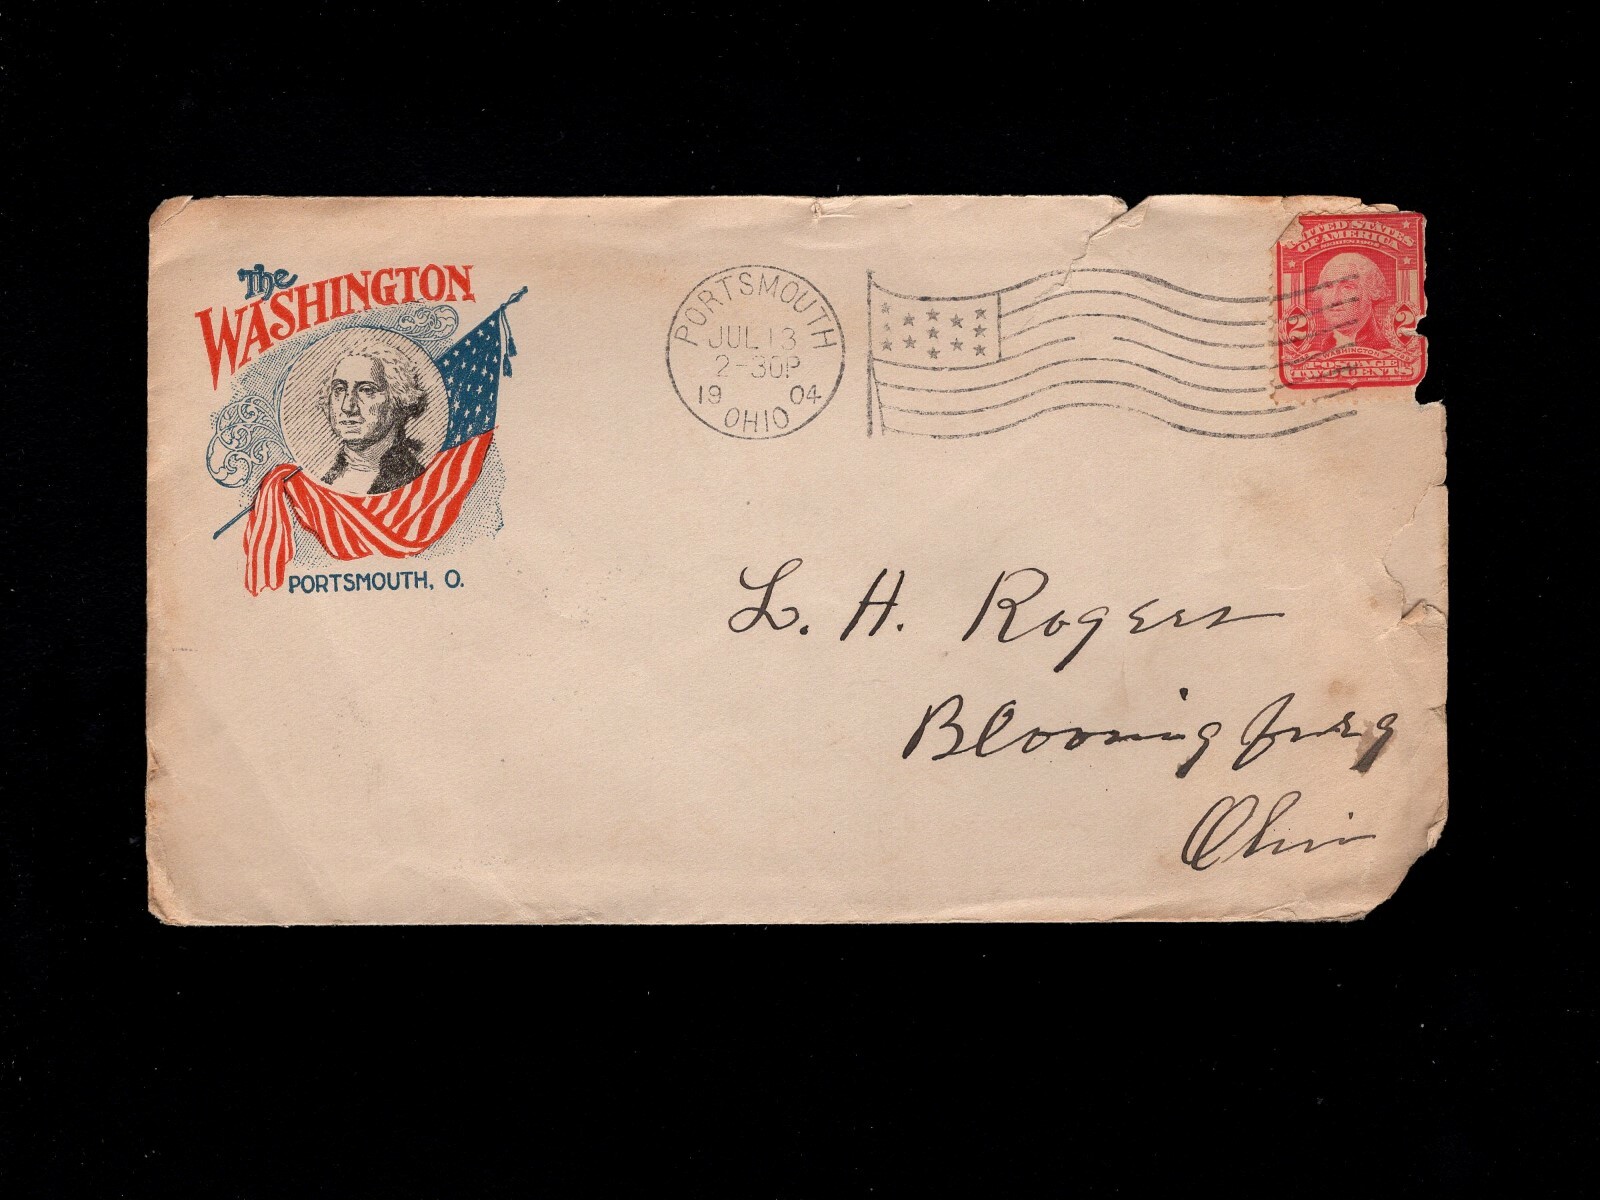 The
WASHINGTON
PORTSMOUTH, O.
PORTSMOUTH
JUL 13
2-30P
1904
OHIO
UNITED STATES
OF AMERICA
SERIES 1902
2 2
WASHINGTON
POSTAGE
TWO CENTS
L. H. Rogers
Bloomingburg
Ohio